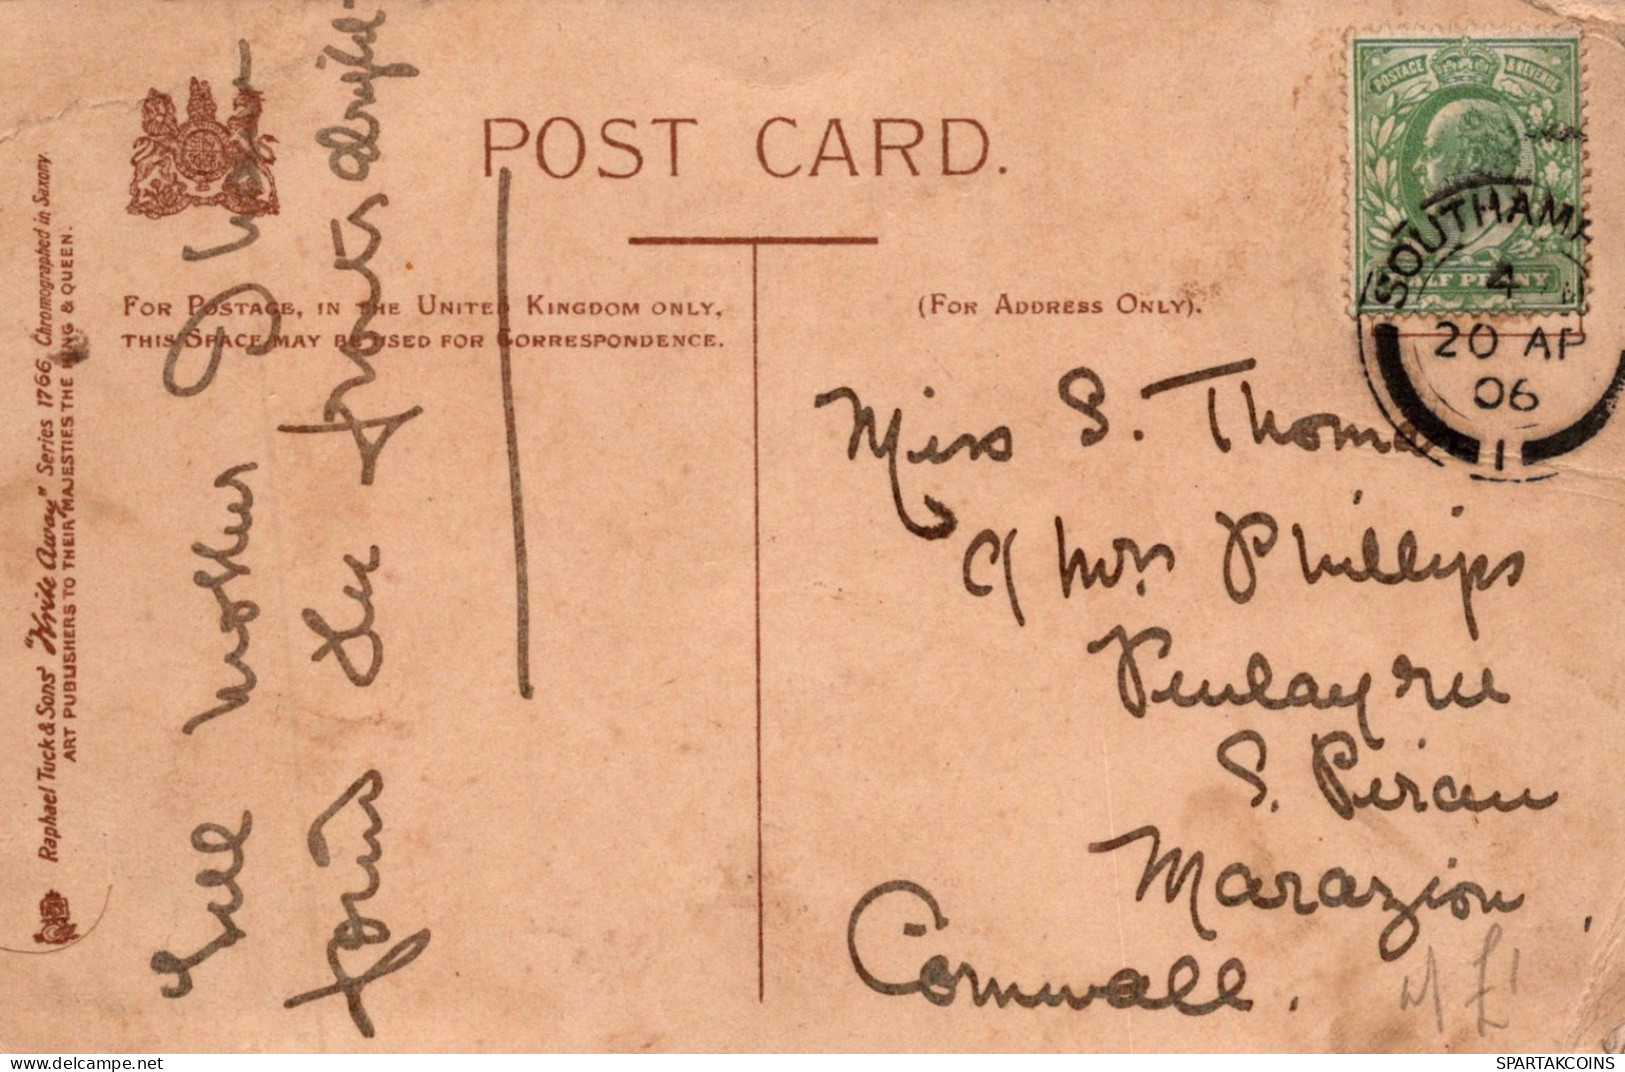 POST CARD.
FOR POSTAGE, IN THE UNITED KINGDOM ONLY,
THIS SPACE MAY BE USED FOR CORRESPONDENCE.
(FOR ADDRESS ONLY).
Raphael Tuck & Sons' "Write Away" Series 1766. Chromographed in Saxony.
ART PUBLISHERS TO THEIR MAJESTIES THE KING & QUEEN.
Tell mother I
POSTAGE & REVENUE
SOUTHAMP
4
20 AP
06
1
Miss S. Thomas
c/ Mrs Phillips
S. Piran
Marazion
Cornwall.
£1
SPARTAKCOINS